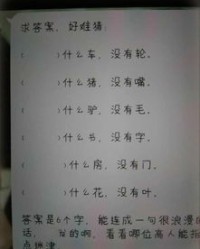 求答案, 好难猜:
( )什么车, 没有轮。
( )什么猪, 没有嘴。
( )什么驴, 没有毛。
( )什么书, 没有字。
( )什么房, 没有门。
( )什么花, 没有叶。
答案是6个字, 能连成一句很浪漫
话, 的啊, 看看哪位高人能
点